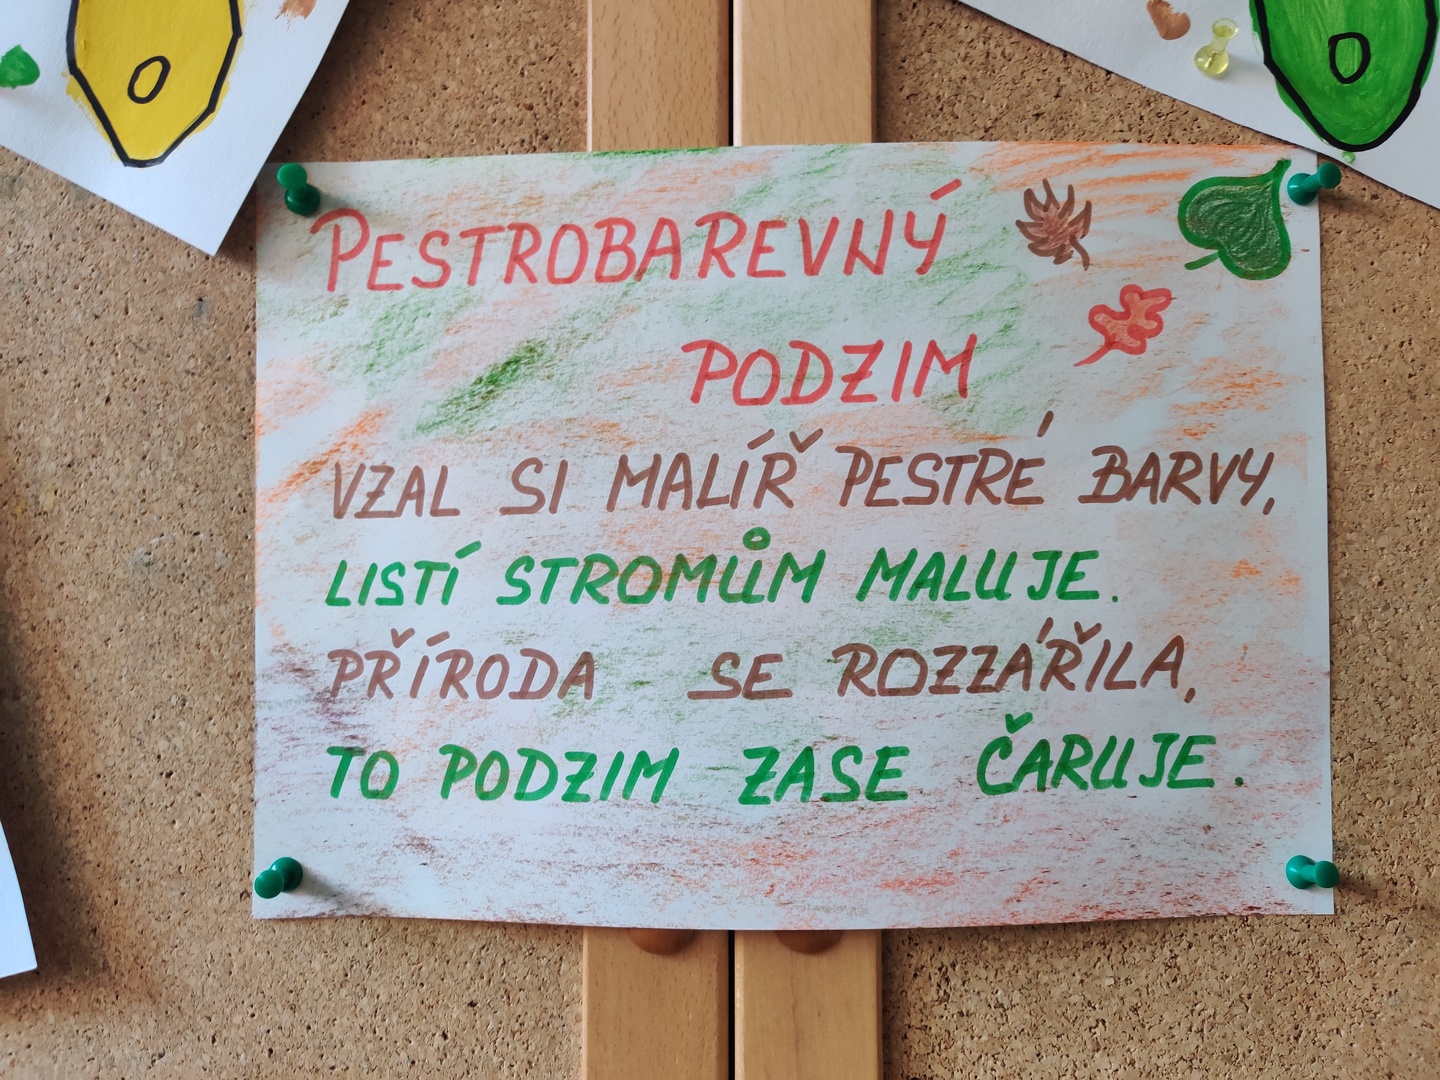 PESTROBAREVNÝ
PODZIM
VZAL SI MALÍŘ PESTRÉ BARVY,
LISTÍ STROMŮM MALUJE.
PŘÍRODA SE ROZZÁŘILA,
TO PODZIM ZASE ČARUJE.